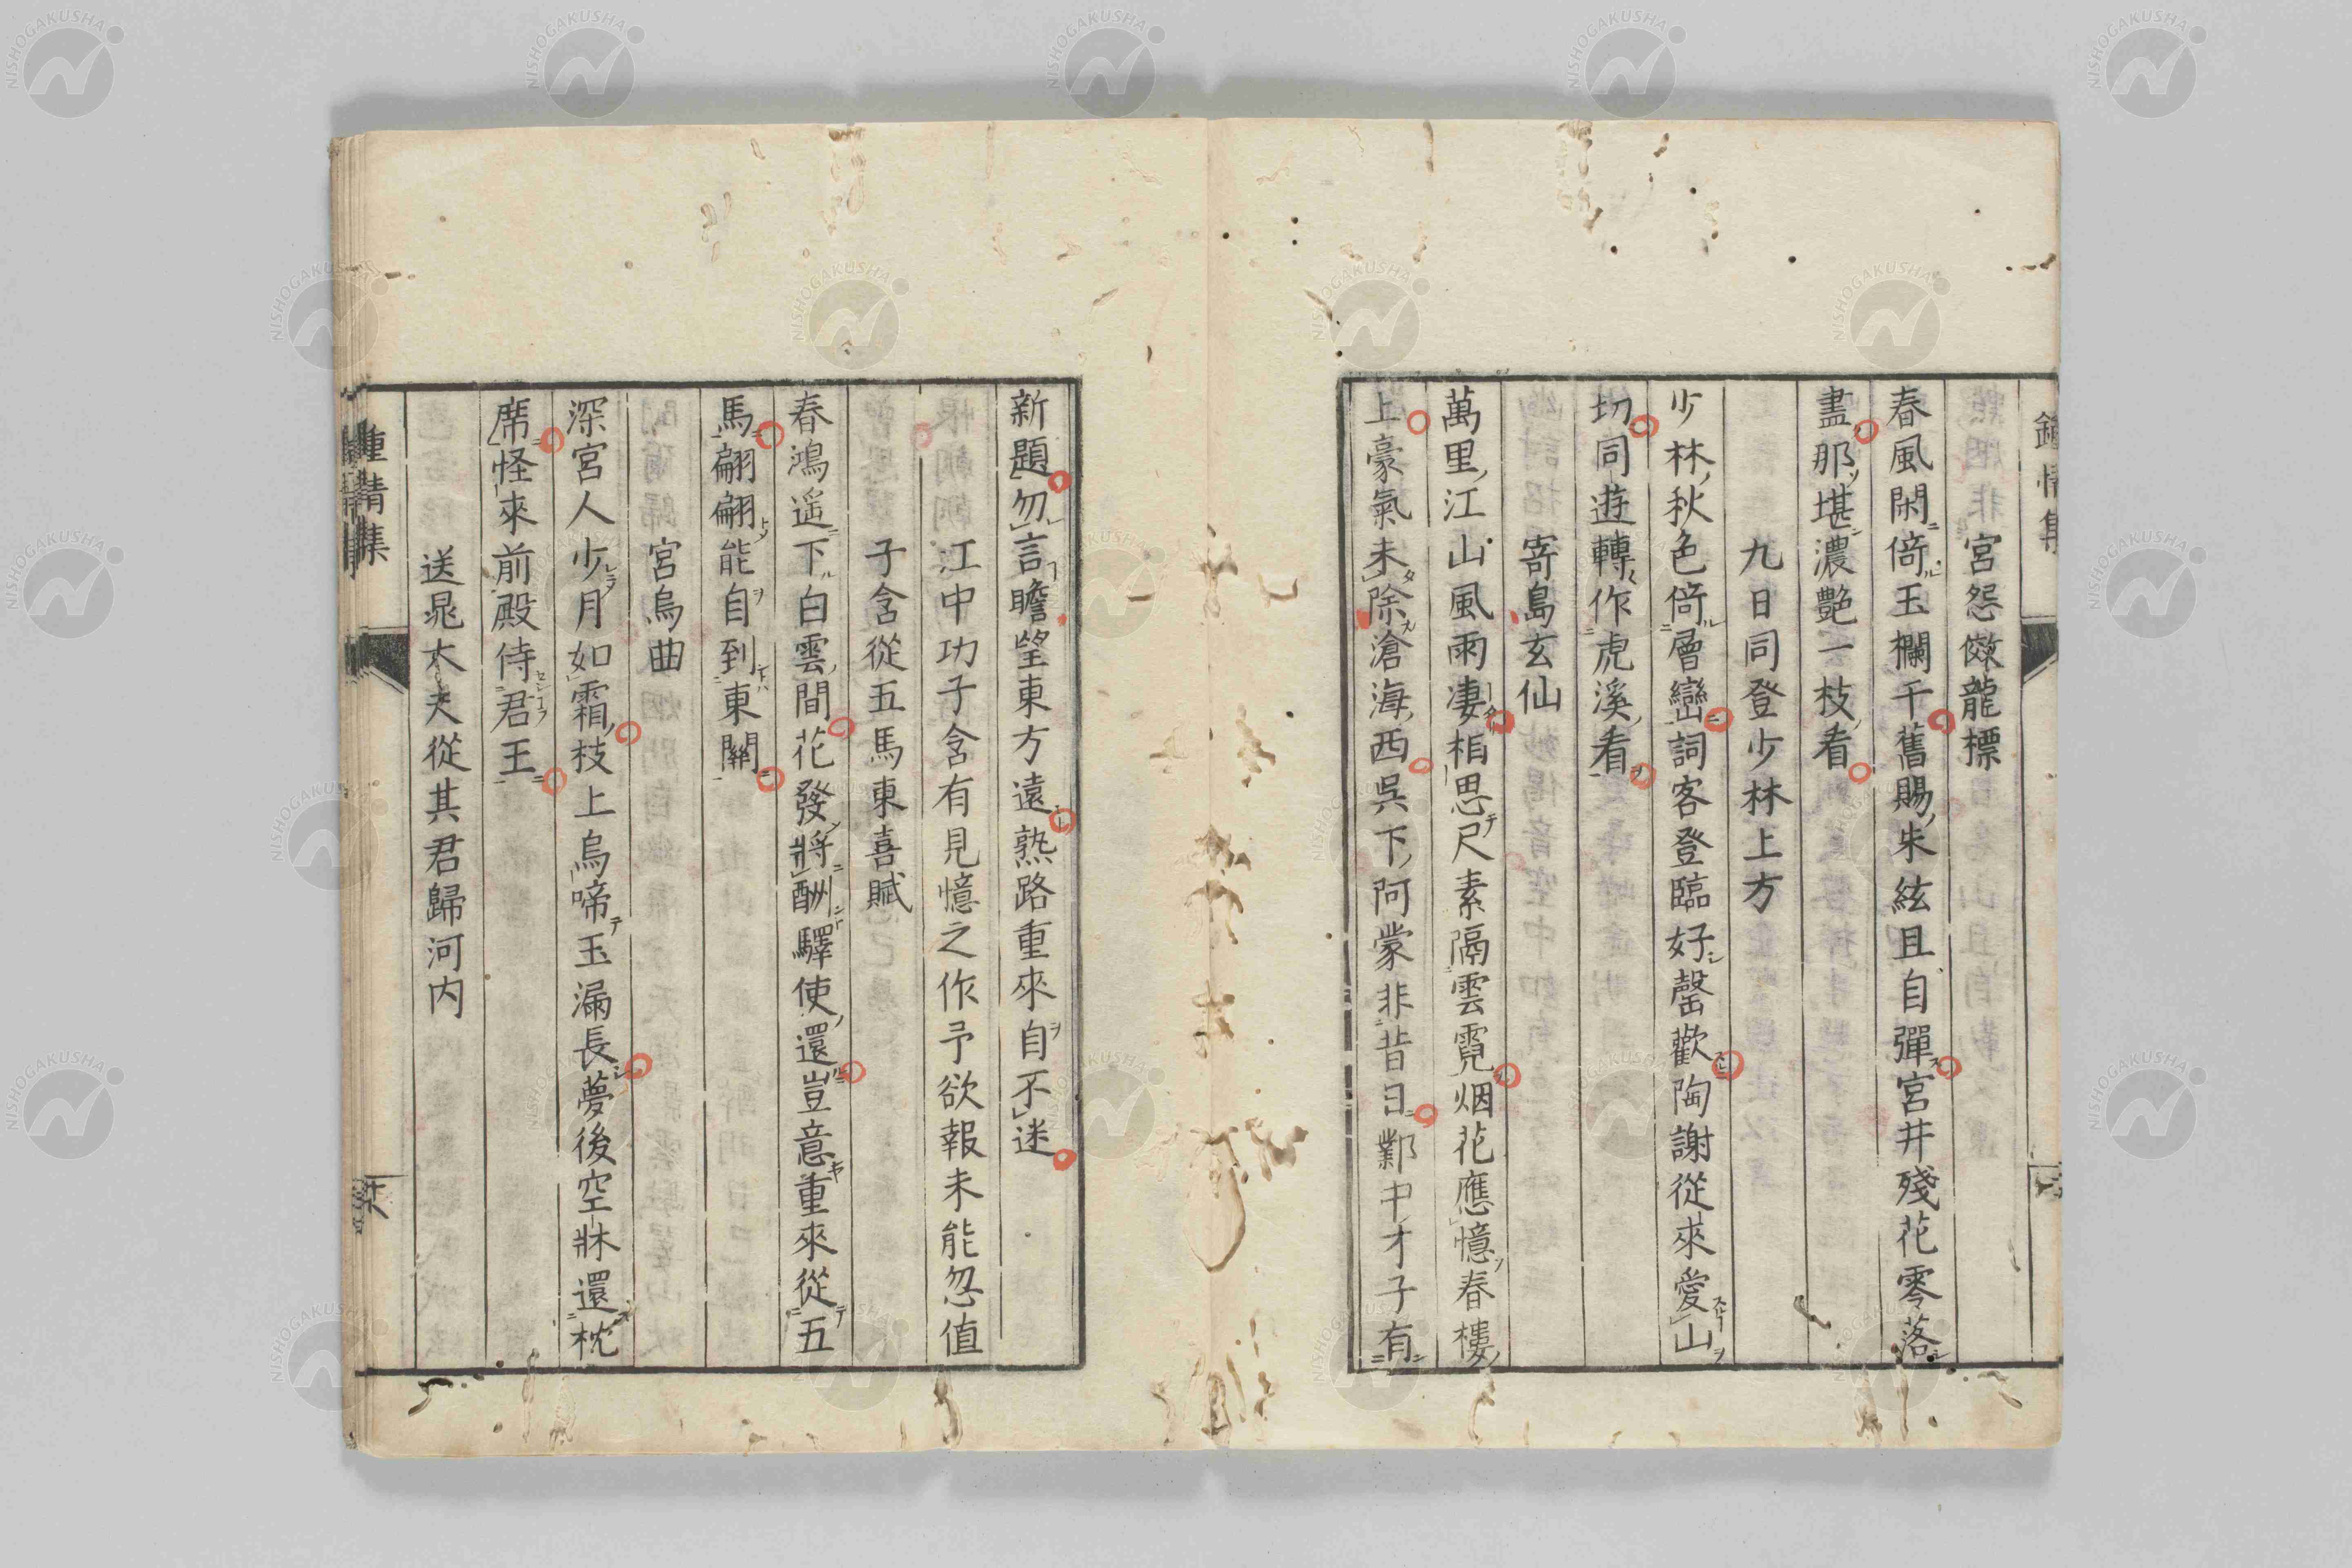 宮怨倣龍標
春風閑倚玉欄干舊賜朱絃且自彈宮井殘花零落
盡那堪濃艷一枝看
九日同登少林上方
少林秋色倚層巒詞客登臨好罄歡陶謝從來愛山
切同遊轉作虎溪看
寄島玄仙
萬里江山風雨凄相思尺素隔雲霓烟花應憶春樓
上豪氣未除滄海西呉下阿蒙非昔日鄴中才子有
新題勿言瞻望東方遠熟路重來自不迷
江中功子含有見憶之作予欲報未能忽值
子含從五馬東喜賦
春鴻遥下白雲間花發將酬驛使還豈意重來從五
馬翩翩能自到東關
宮烏曲
深宮人少月如霜枝上烏啼玉漏長夢後空牀還枕
席怪來前殿侍君王
送晁太夫從其君歸河内
鍾情集
NISHOGAKUSHA